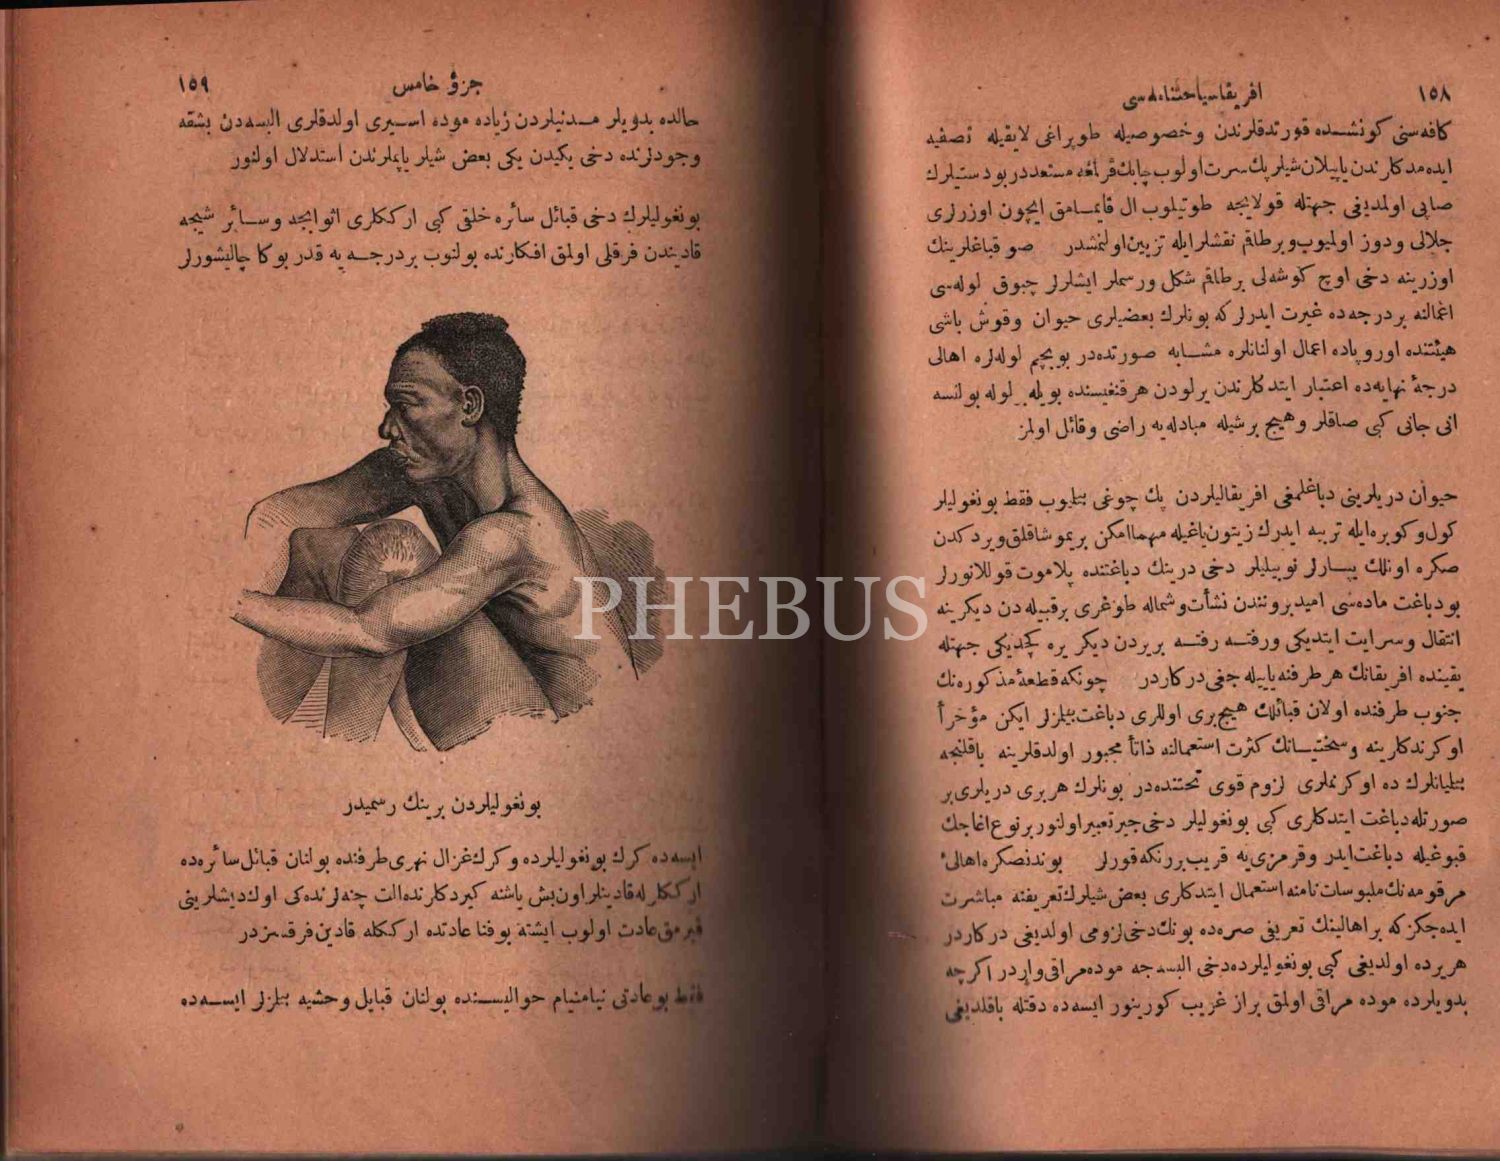 ١٥٨
افريقا سياحتنامه سى
كافه سنى كونشده قورتدقلرندن وخصوصيله طوپراغى لايقيله تصفيه
ايده مدكارندن ياپيلان شيلر پك سرت اولوب چابك قرلمغه مستعددر بو دستيلرك
صاپى اولمديغى جهتله قولايجه طوتيلوب ال قايمامق ايچون اوزرلرى
جلالى ودوز اولميوب وبرطاقم نقشلرايله تزيين اولنمشدر صو قباغلرينك
اوزرينه دخى اوچ كوشه لى برطاقم شكل ورسملر ايشلرلر چبوق لوله سى
اعمالنه بر درجه ده غيرت ايدرلر كه بونلرك بعضيلرى حيوان وقوش باشى
هيئتنده اوروپاده اعمال اولنانلره مشابه صورتده در بو بچم لوله لره اهالى
درجۀ نهايه ده اعتبار ايتدكارندن يرلودن هرقنغيسنده بويله بر لوله بولنسه
انى جانى كبى صاقلر وهيچ برشيله مبادله يه راضى وقائل اولمز
حيوان دريلرينى دباغلمغى افريقاليلردن پك چوغى بيلميوب فقط بونغوليلر
كول وكوبره ايله تربيه ايدرك زيتون ياغيله مهما امكن بريموشاقلق ويردكدن
صكره اونك يپارلر نوبيليلر دخى درينك دباغتنده پلاموت قوللانورلر
بو دباغت ماده سى اميد بروننـدن نشأت وشماله طوغرى برقبيله دن ديكرينه
انتقال وسرايت ايتديكى ورفته رفته بريردن ديكر يره كچديكى جهتله
يقينده افريقانك هر طرفنه ياييله جغى دركاردر چونكه قطعۀ مذكوره نك
جنوب طرفنده اولان قبائلك هيچ برى اوللرى دباغت بيلمزلر ايكن مؤخراً
اوكرندكارينه وسختيانك كثرت استعمالنه ذاتاً مجبور اولدقلرينه باقلنجه
بيلميانلرك ده اوكرنملرى لزوم قوى تحتنده در بونلرك هربرى دريلرى بر
صورتله دباغت ايتدكارى كبى بونغوليلر دخى جير تعبير اولنور برنوع اغاجك
قبوغيله دباغت ايدر وقرمزى يه قريب بر رنكه قورلر بوندنصكره اهالئ
مرقومه نك ملبوسات نامنه استعمال ايتدكارى بعض شيلرك تعريفنه مباشرت
ايده جكز كه بر اهالينك تعريفى صره ده بونك دخى لزومى اولديغى دركاردر
هريرده اولديغى كبى بونغوليلرده دخى البسه جه موده مراقى واردر اكرچه
بدويلرده موده مراقى اولمق براز غريب كورينور ايسه ده دقتله باقلديغى
١٥٩
جزؤ خامس
حالده بدويلر مدنيلردن زياده موده اسيرى اولدقلرى البسه دن بشقه
وجودلرنده دخى يكيدن يكى بعض شيلر ياپملرندن استدلال اولنور
بونغوليلرك دخى قبائل سائره خلقى كبى ارككلرى اثوابجه وسائر شيجه
قاديندن فرقلى اولمق افكارنده بولنوب بردرجه يه قدر بوكا چاليشورلر
بونغوليلردن برينك رسميدر
ايسه ده كرك بونغوليلرده وكرك غزال نهرى طرفنده بولنان قبائل سائره ده
ارككلرله قادينلر اون بش ياشنه كيردكارنده الت چنه لرنده كى اوك ديشلرينى
قيرمق عادت اولوب ايشته بو فنا عادتده ارككله قادين فرقسزدر
فقط بو عادتى نيامنيام حواليسنده بولنان قبايل وحشيه بيلمزلر ايسه ده
PHEBUS